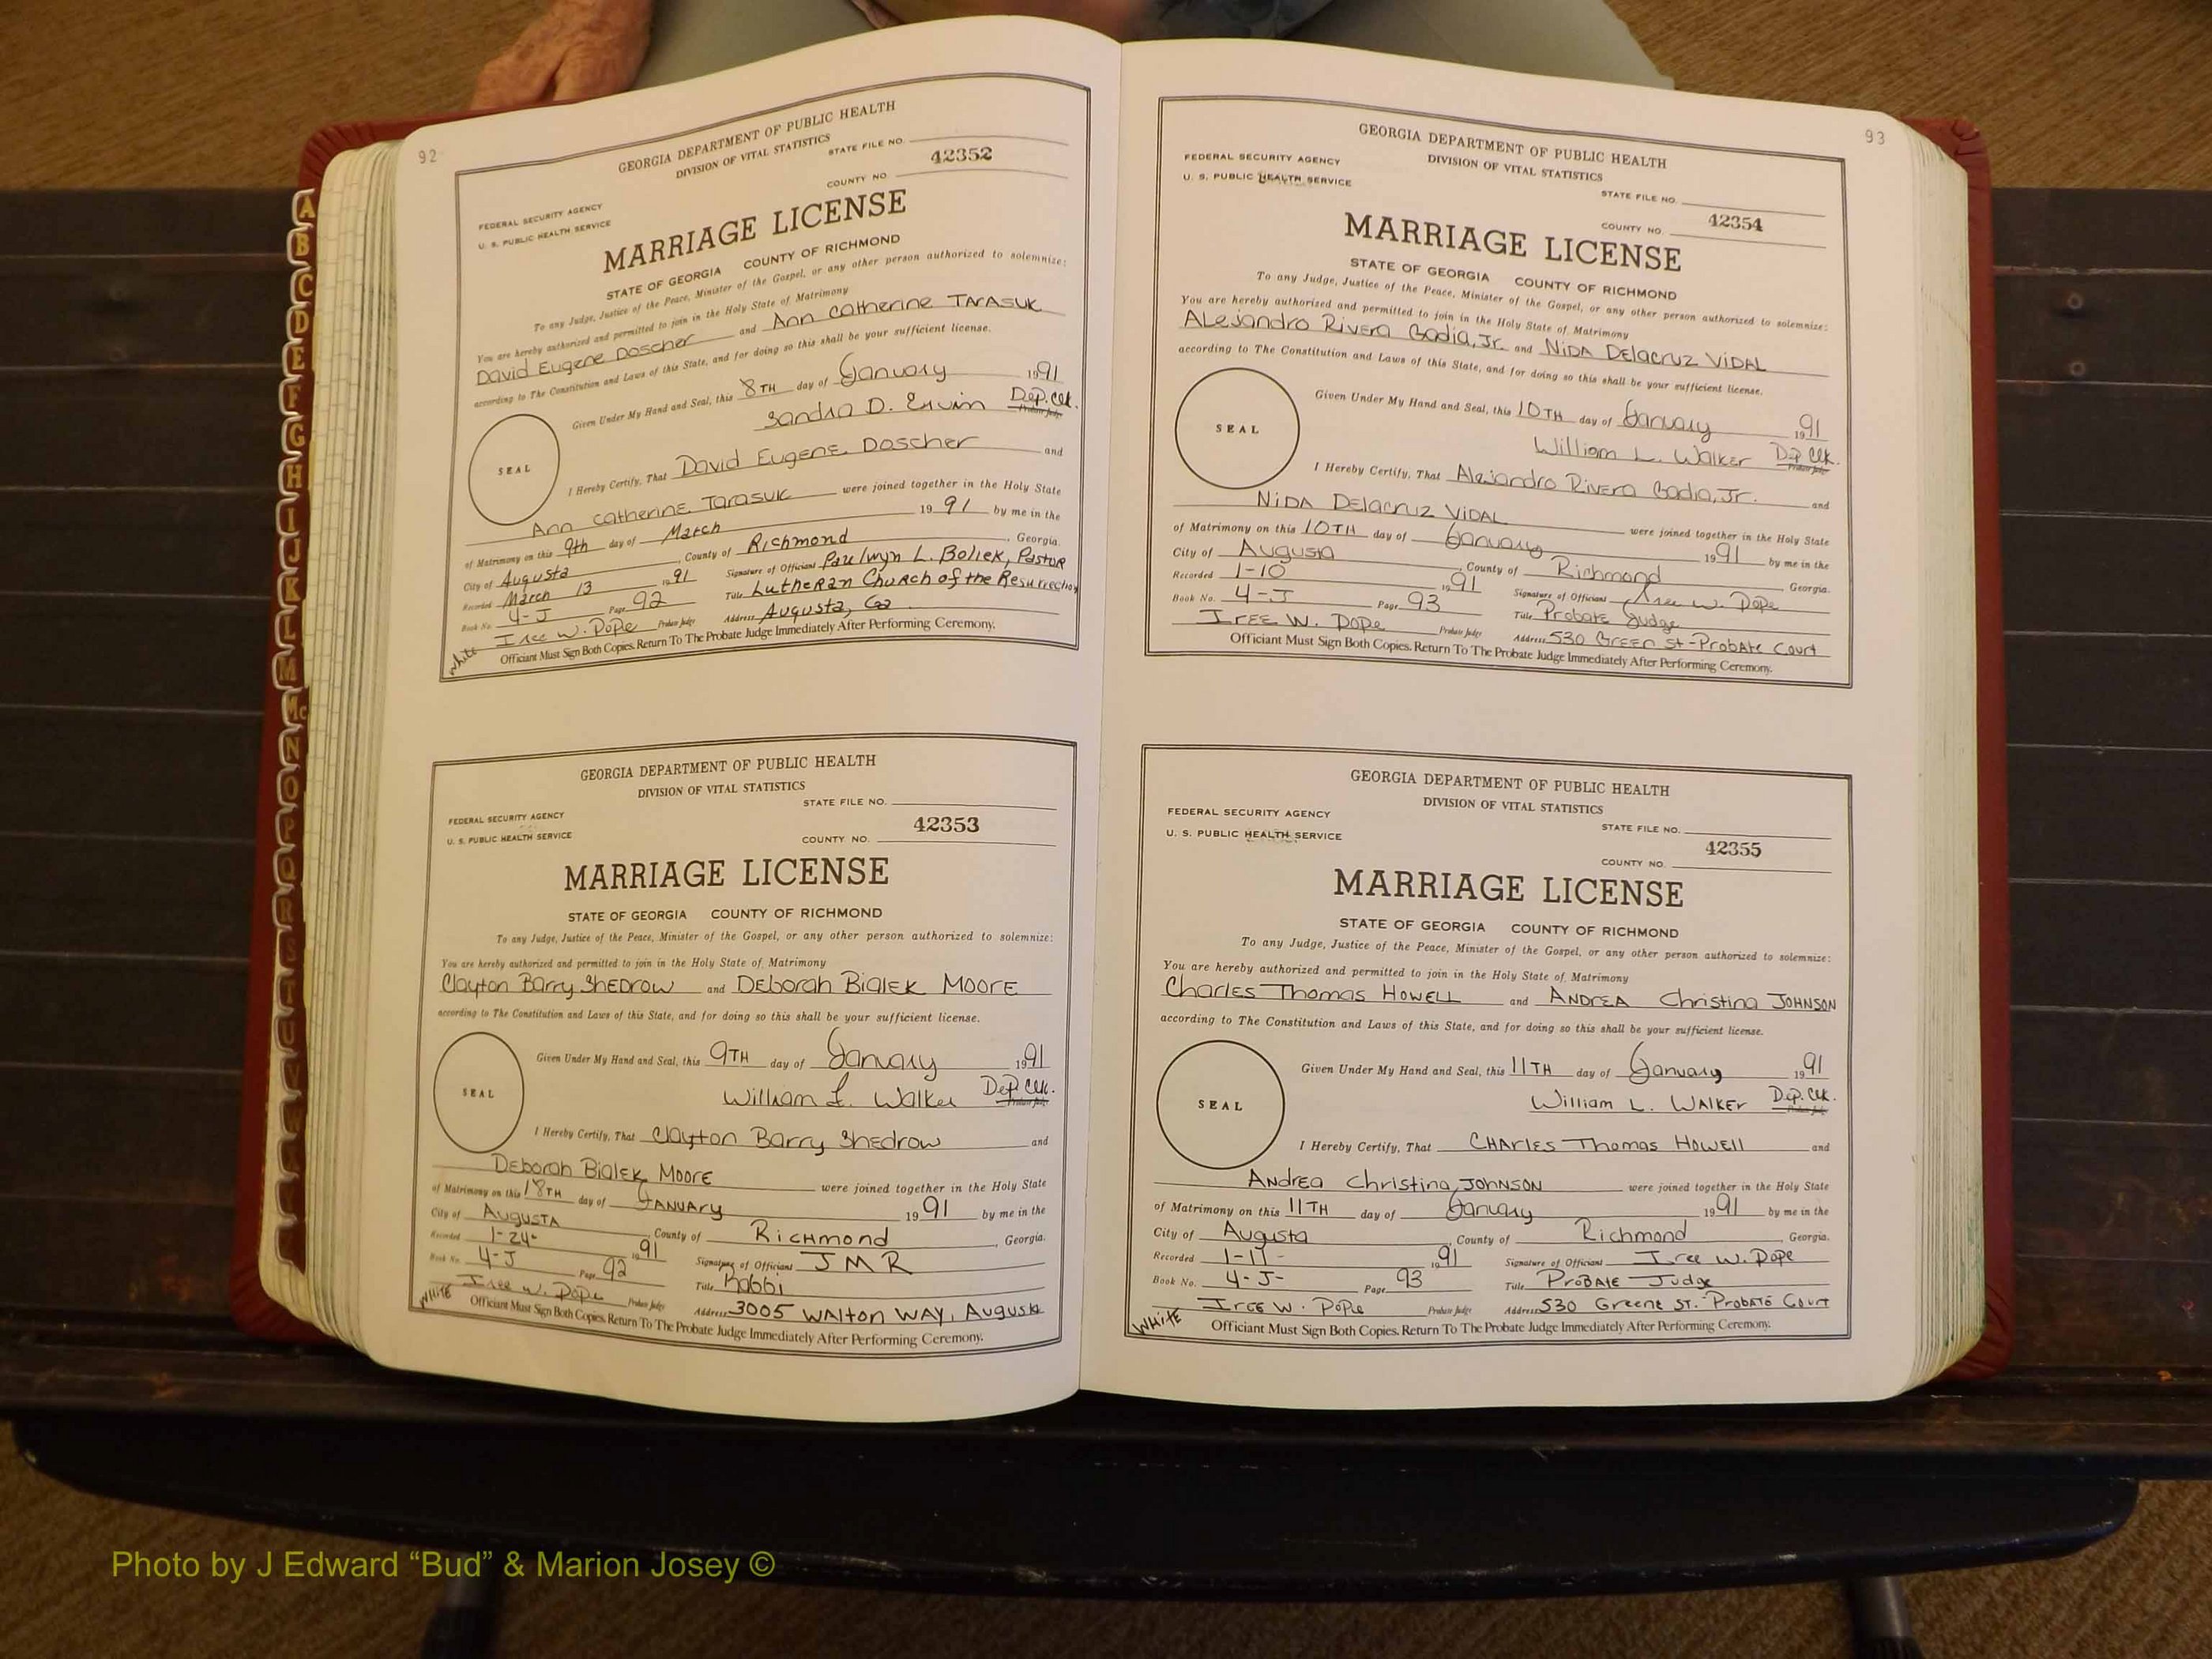 92
GEORGIA DEPARTMENT OF PUBLIC HEALTH
DIVISION OF VITAL STATISTICS
STATE FILE NO.
42352
COUNTY NO
FEDERAL SECURITY AGENCY
U. S. PUBLIC HEALTH SERVICE
MARRIAGE LICENSE
STATE OF GEORGIA COUNTY OF RICHMOND
To any Judge, Justice of the Peace, Minister of the Gospel, or any other person authorized to solemnize:
You are hereby authorized and permitted to join in the Holy State of Matrimony
David Eugene Doscher and Ann Catherine TARASUK
according to The Constitution and Laws of this State, and for doing so this shall be your sufficient license.
Given Under My Hand and Seal, this 8TH day of January 1991
Sandra D. Ervin Dep. Clk. Probate Judge
SEAL
I Hereby Certify, That David Eugene Doscher and
Ann Catherine Tarasuk were joined together in the Holy State
of Matrimony on this 9th day of March 19 91 by me in the
City of Augusta, County of Richmond, Georgia.
Recorded March 13 1991 Signature of Officiant Paulwyn L. Boliek, Pastor
Book No. 4-J Page 92 Title Lutheran Church of the Resurrection
Iree W. Pope Probate Judge Address Augusta, Ga
White Officiant Must Sign Both Copies. Return To The Probate Judge Immediately After Performing Ceremony.
GEORGIA DEPARTMENT OF PUBLIC HEALTH
DIVISION OF VITAL STATISTICS
STATE FILE NO.
FEDERAL SECURITY AGENCY
42353
U. S. PUBLIC HEALTH SERVICE
COUNTY NO.
MARRIAGE LICENSE
STATE OF GEORGIA COUNTY OF RICHMOND
To any Judge, Justice of the Peace, Minister of the Gospel, or any other person authorized to solemnize:
You are hereby authorized and permitted to join in the Holy State of Matrimony
Clayton Barry Shedrow and Deborah Bialek Moore
according to The Constitution and Laws of this State, and for doing so this shall be your sufficient license.
Given Under My Hand and Seal, this 9TH day of January 1991
William L. Walker Dep. Clk. Probate Judge
SEAL
I Hereby Certify, That Clayton Barry Shedrow and
Deborah Bialek Moore were joined together in the Holy State
of Matrimony on this 18TH day of January 19 91 by me in the
City of Augusta, County of Richmond, Georgia.
Recorded 1-24- 1991 Signature of Officiant J M R
Book No. 4-J Page 92 Title Rabbi
Iree W. Pope Probate Judge Address 3005 Walton Way, Augusta
White Officiant Must Sign Both Copies. Return To The Probate Judge Immediately After Performing Ceremony.
93
GEORGIA DEPARTMENT OF PUBLIC HEALTH
DIVISION OF VITAL STATISTICS
FEDERAL SECURITY AGENCY
U. S. PUBLIC HEALTH SERVICE
STATE FILE NO.
42354
COUNTY NO.
MARRIAGE LICENSE
STATE OF GEORGIA COUNTY OF RICHMOND
To any Judge, Justice of the Peace, Minister of the Gospel, or any other person authorized to solemnize:
You are hereby authorized and permitted to join in the Holy State of Matrimony
Alejandro Rivera Gadia, Jr. and Nida Delacruz Vidal
according to The Constitution and Laws of this State, and for doing so this shall be your sufficient license.
Given Under My Hand and Seal, this 10TH day of January 1991
William L. Walker Dep Clk. Probate Judge
SEAL
I Hereby Certify, That Alejandro Rivera Gadia, Jr. and
Nida Delacruz Vidal were joined together in the Holy State
of Matrimony on this 10TH day of January 1991 by me in the
City of Augusta, County of Richmond, Georgia.
Recorded 1-10 1991 Signature of Officiant Iree W. Pope
Book No. 4-J Page 93 Title Probate Judge
Iree W. Pope Probate Judge Address 530 Green St-Probate Court
Officiant Must Sign Both Copies. Return To The Probate Judge Immediately After Performing Ceremony.
GEORGIA DEPARTMENT OF PUBLIC HEALTH
DIVISION OF VITAL STATISTICS
FEDERAL SECURITY AGENCY
STATE FILE NO.
U. S. PUBLIC HEALTH SERVICE
42355
COUNTY NO.
MARRIAGE LICENSE
STATE OF GEORGIA COUNTY OF RICHMOND
To any Judge, Justice of the Peace, Minister of the Gospel, or any other person authorized to solemnize:
You are hereby authorized and permitted to join in the Holy State of Matrimony
Charles Thomas Howell and Andrea Christina Johnson
according to The Constitution and Laws of this State, and for doing so this shall be your sufficient license.
Given Under My Hand and Seal, this 11TH day of January 1991
William L. Walker Dep. Clk. Probate Judge
SEAL
I Hereby Certify, That Charles Thomas Howell and
Andrea Christina Johnson were joined together in the Holy State
of Matrimony on this 11TH day of January 1991 by me in the
City of Augusta, County of Richmond, Georgia.
Recorded 1-11- 1991 Signature of Officiant Iree W. Pope
Book No. 4-J- Page 93 Title Probate Judge
Iree W. Pope Probate Judge Address 530 Greene St. Probate Court
White Officiant Must Sign Both Copies. Return To The Probate Judge Immediately After Performing Ceremony.
A
B
C
D
E
F
G
H
I
J
K
L
M
Mc
N
O
P
Q
R
S
T
U
V
W
Photo by J Edward “Bud” & Marion Josey ©